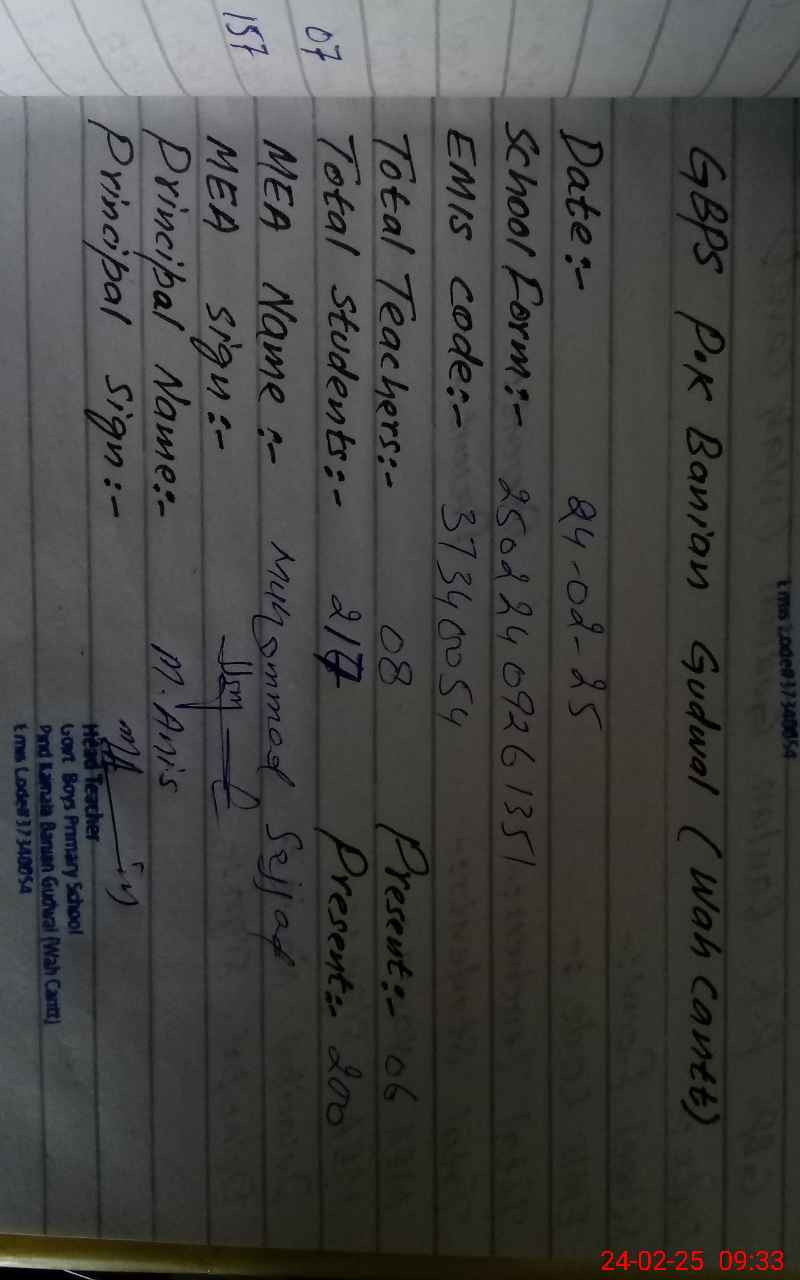 Emis Code#37340054
GBPS P.K Banian Gudwal (Wah Cantt)
Date:- 24-02-25
School Form:- 2502240926 1351
EMIS Code:- 37340054
Total Teachers:- 08 Present:- 06
Total Students:- 217 Present:- 200
MEA Name:- Muhammad Sajjad
MEA Sign:-
Principal Name:- M. Anis
Principal Sign:-
Head Teacher
Govt Boys Primary School
Pind Kamala Banian Gudwal (Wah Cantt)
Emis Code#37340054
07
157
24-02-25 09:33